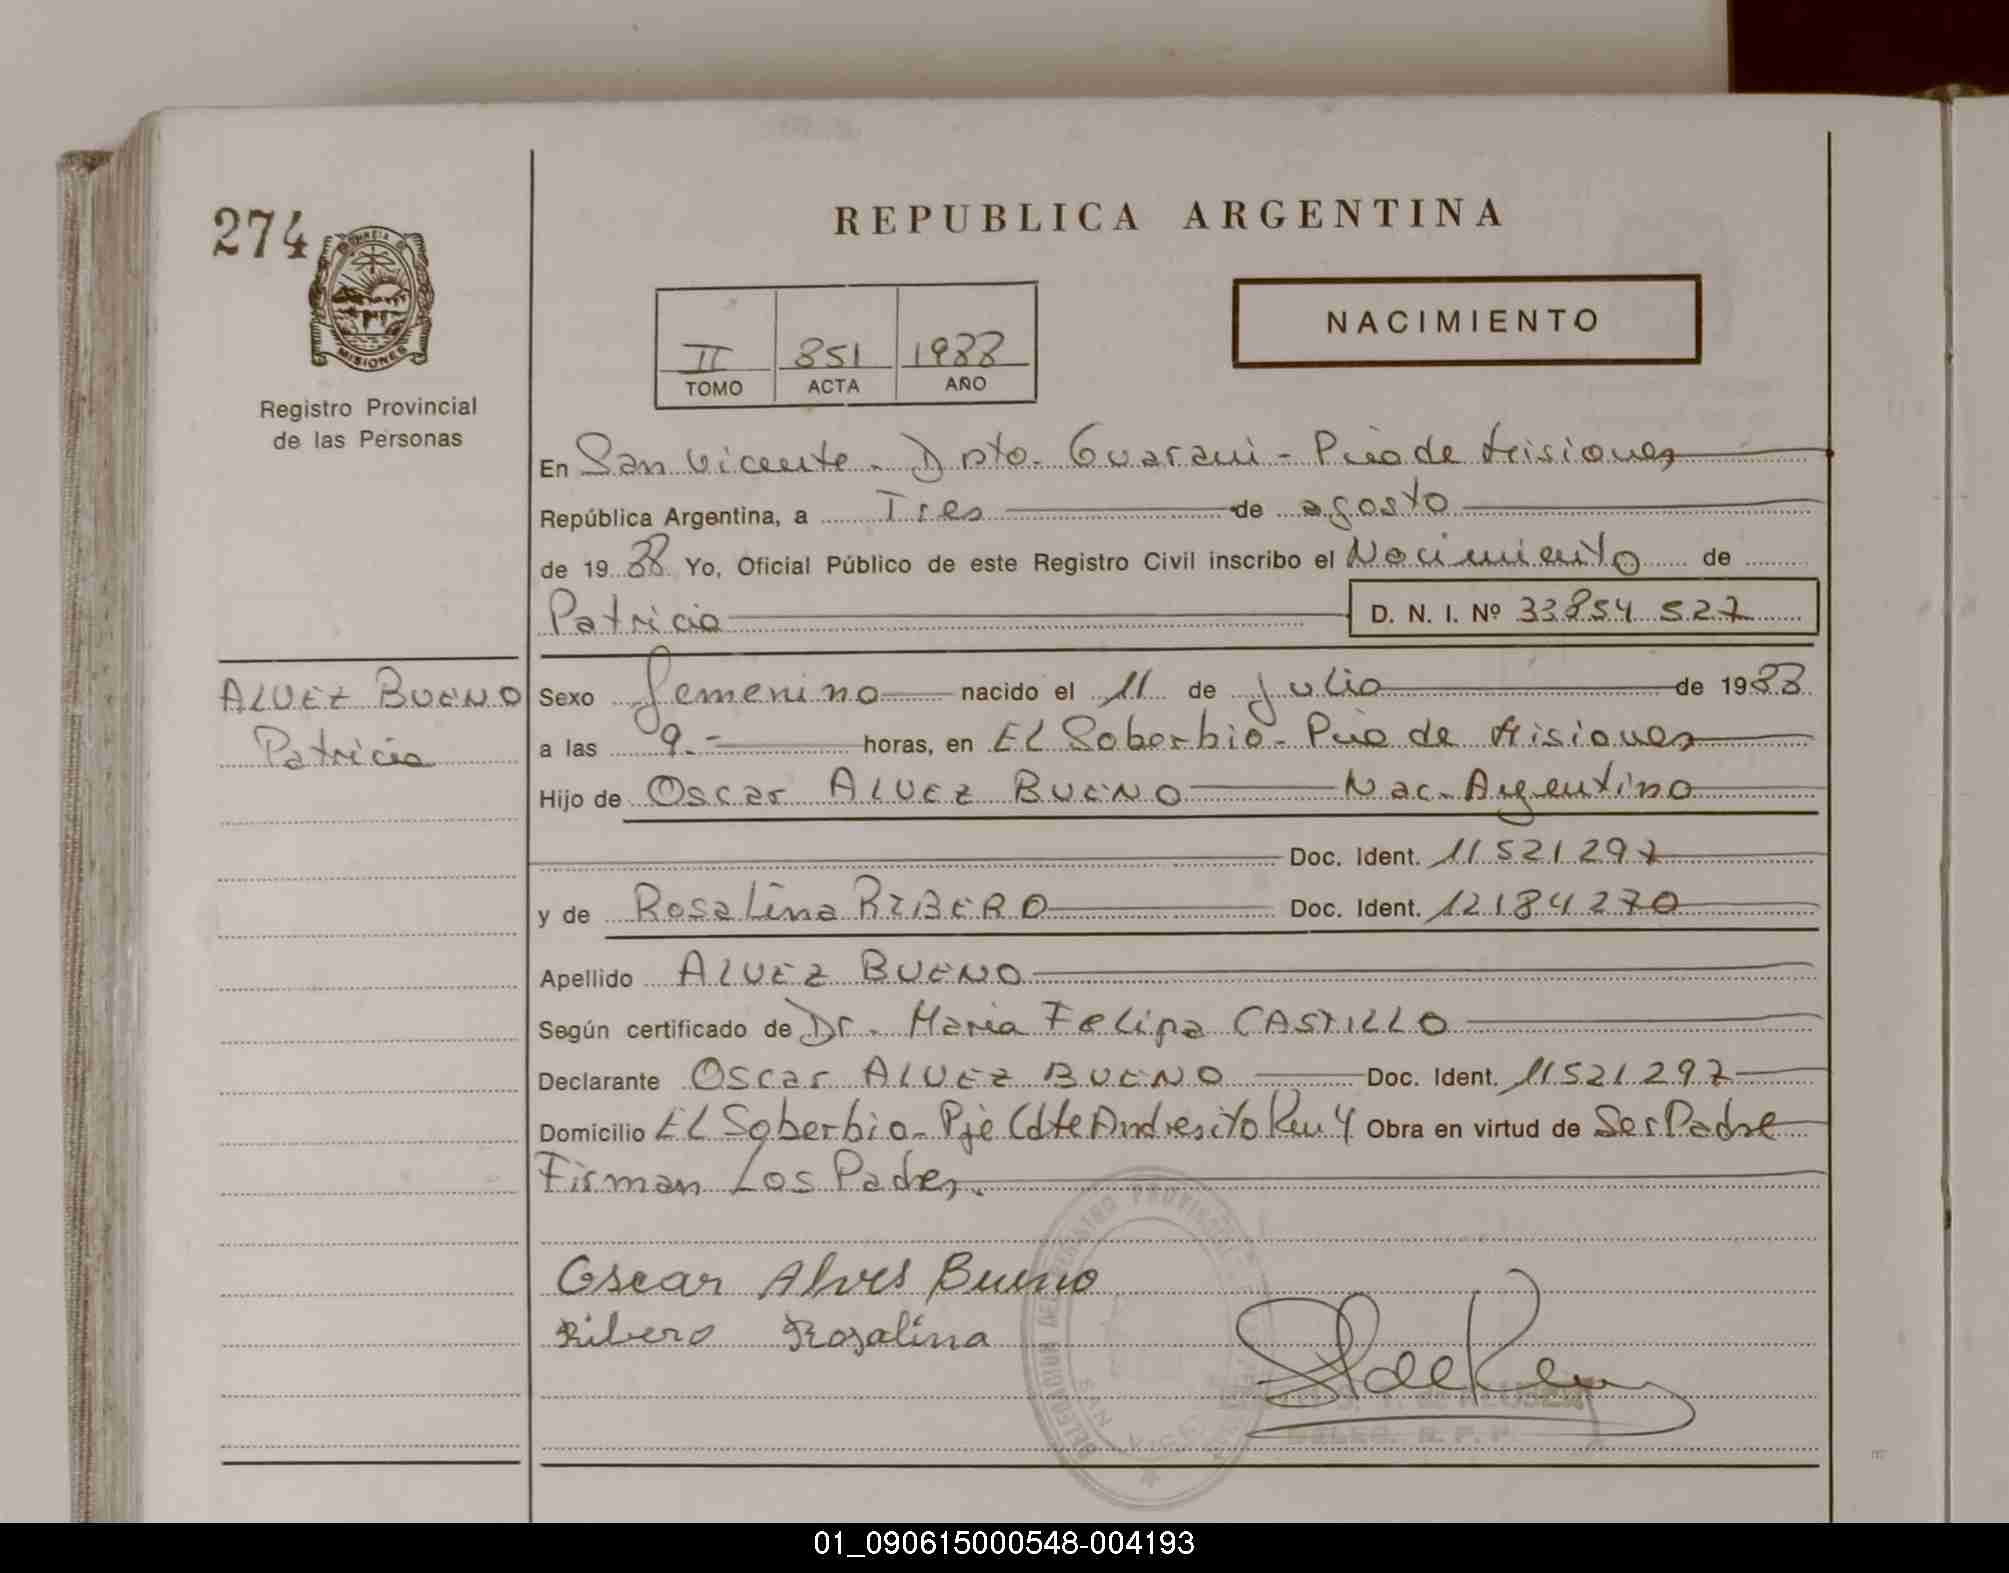 274
REPUBLICA ARGENTINA
MISIONES
Registro Provincial
de las Personas
II 851 1988
TOMO ACTA AÑO
NACIMIENTO
En San Vicente - Dpto. Guarani - Pcia de Misiones
República Argentina, a Tres de agosto
de 19 88 Yo, Oficial Público de este Registro Civil inscribo el Nacimiento de
Patricia D. N. I. Nº 33854 527
ALVEZ BUENO
Patricia
Sexo femenino nacido el 11 de julio de 1988
a las 9.- horas, en EL Soberbio - Pcia de Misiones
Hijo de Oscar ALVEZ BUENO Nac. Argentino
Doc. Ident. 11521297
y de Rosalina RIBERO Doc. Ident. 12184270
Apellido ALVEZ BUENO
Según certificado de Dr. Maria Felipa CASTILLO
Declarante Oscar ALVEZ BUENO Doc. Ident. 11521297
Domicilio EL Soberbio - Pje Cdte Andresito Km 4 Obra en virtud de Ser Padre
Firman Los Padres.
Oscar Alves Bueno
Ribero Rosalina
DELEG. R. P. P.
01_090615000548-004193